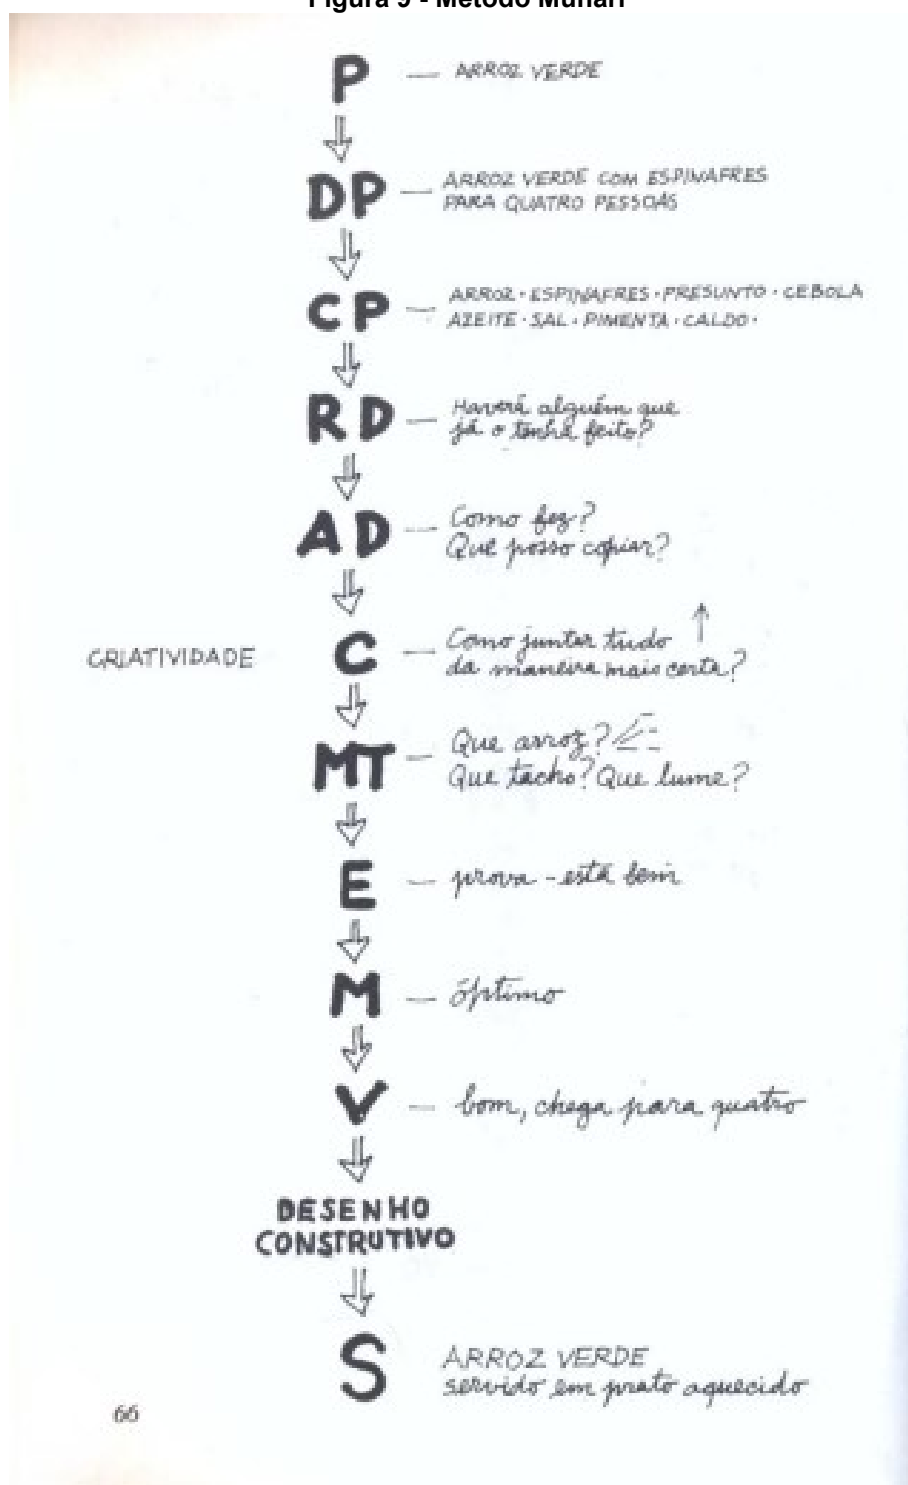 Figura 9 - Método Munari
P — ARROZ VERDE
DP — ARROZ VERDE COM ESPINAFRES
PARA QUATRO PESSOAS
CP — ARROZ · ESPINAFRES · PRESUNTO · CEBOLA
AZEITE · SAL · PIMENTA · CALDO ·
RD — Haverá alguém que
já o tenha feito?
AD — Como fez?
Que posso copiar?
CRIATIVIDADE C — Como juntar tudo
da maneira mais certa?
MT — Que arroz?
Que tacho? Que lume?
E — prova - está bem
M — óptimo
V — bom, chega para quatro
DESENHO
CONSTRUTIVO
S ARROZ VERDE
servido em prato aquecido
66